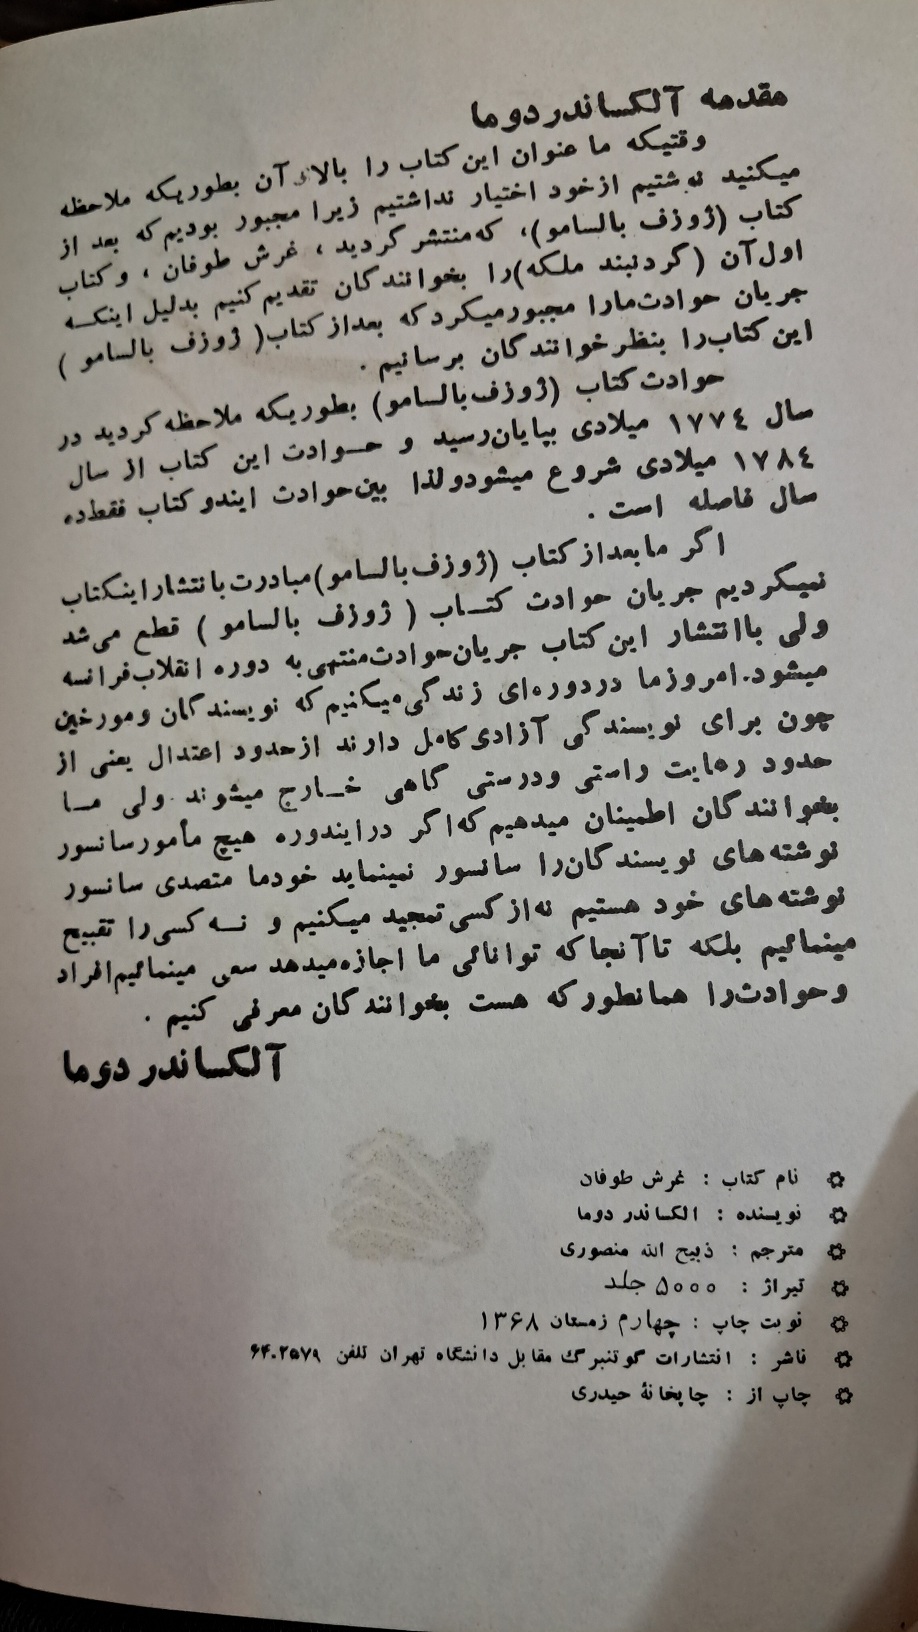 مقدمه آلکساندر دوما
وقتیکه ما عنوان این کتاب را بالای آن بطوریکه ملاحظه
میکنید نوشتیم از خود اختیار نداشتیم زیرا مجبور بودیم که بعد از
کتاب (ژوزف بالسامو)، که منتشر گردید ، غرش طوفان ، و کتاب
اول آن (گردنبند ملکه) را بخوانندگان تقدیم کنیم بدلیل اینکه
جریان حوادث ما را مجبور میکرد که بعد از کتاب ( ژوزف بالسامو )
این کتاب را بنظر خوانندگان برسانیم .
حوادث کتاب (ژوزف بالسامو) بطوریکه ملاحظه کردید در
سال ۱۷۷٤ میلادی بپایان رسید و حوادث این کتاب از سال
۱۷۸٤ میلادی شروع میشود ولذا بین حوادث ایندو کتاب فقط ده
سال فاصله است .
اگر ما بعد از کتاب (ژوزف بالسامو) مبادرت بانتشار اینکتاب
نمیکردیم جریان حوادث کتاب ( ژوزف بالسامو ) قطع می‌شد
ولی باانتشار این کتاب جریان حوادث منتهی به دوره انقلاب فرانسه
میشود. امروز ما در دوره‌ای زندگی میکنیم که نویسندگان و مورخین
چون برای نویسندگی آزادی کامل دارند از حدود اعتدال یعنی از
حدود رعایت راستی و درستی گاهی خارج میشوند ولی ما
بخوانندگان اطمینان میدهیم که اگر در ایندوره هیچ مأمور سانسور
نوشته‌های نویسندگان را سانسور نمینماید خود ما متصدی سانسور
نوشته‌های خود هستیم نه از کسی تمجید میکنیم و نه کسی را تقبیح
مینمائیم بلکه تا آنجا که توانائی ما اجازه میدهد سعی مینمائیم افراد
و حوادث را همانطور که هست بخوانندگان معرفی کنیم .
آلکساندر دوما
نام کتاب : غرش طوفان
نویسنده : الکساندر دوما
مترجم : ذبیح الله منصوری
تیراژ : ۵۰۰۰ جلد
نوبت چاپ : چهارم زمستان ۱۳۶۸
ناشر : انتشارات گوتنبرگ مقابل دانشگاه تهران تلفن ۶۴۰۲۵۷۹
چاپ از : چاپخانهٔ حیدری